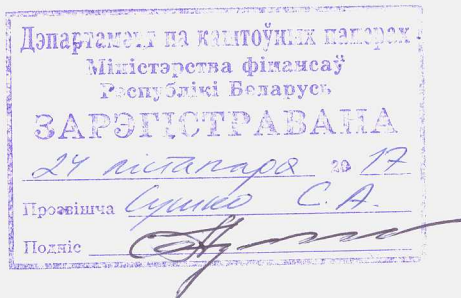 Дэпартамент па каштоўных паперах
Міністэрства фінансаў
Рэспублікі Беларусь
ЗАРЭГІСТРАВАНА
24 лістапада 2017
Прозвішча Сушко С.А.
Подпіс